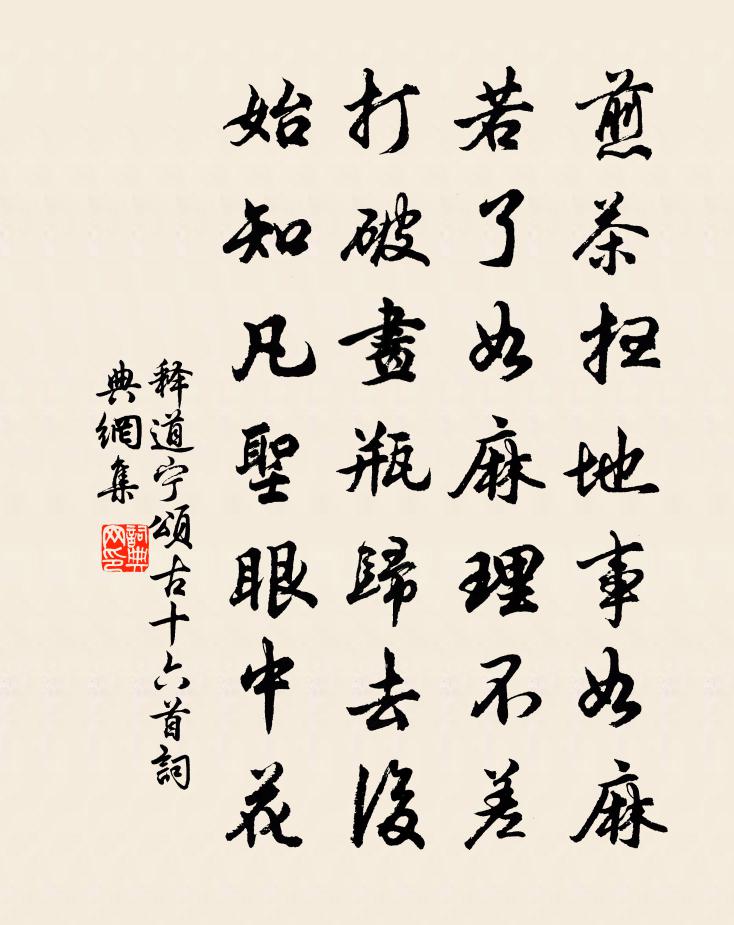 煎茶扫地事如麻
若了如麻理不差
打破畫瓶歸去後
始知凡聖眼中花
释道宁頌古十六首詞
典網集
詞典
网印